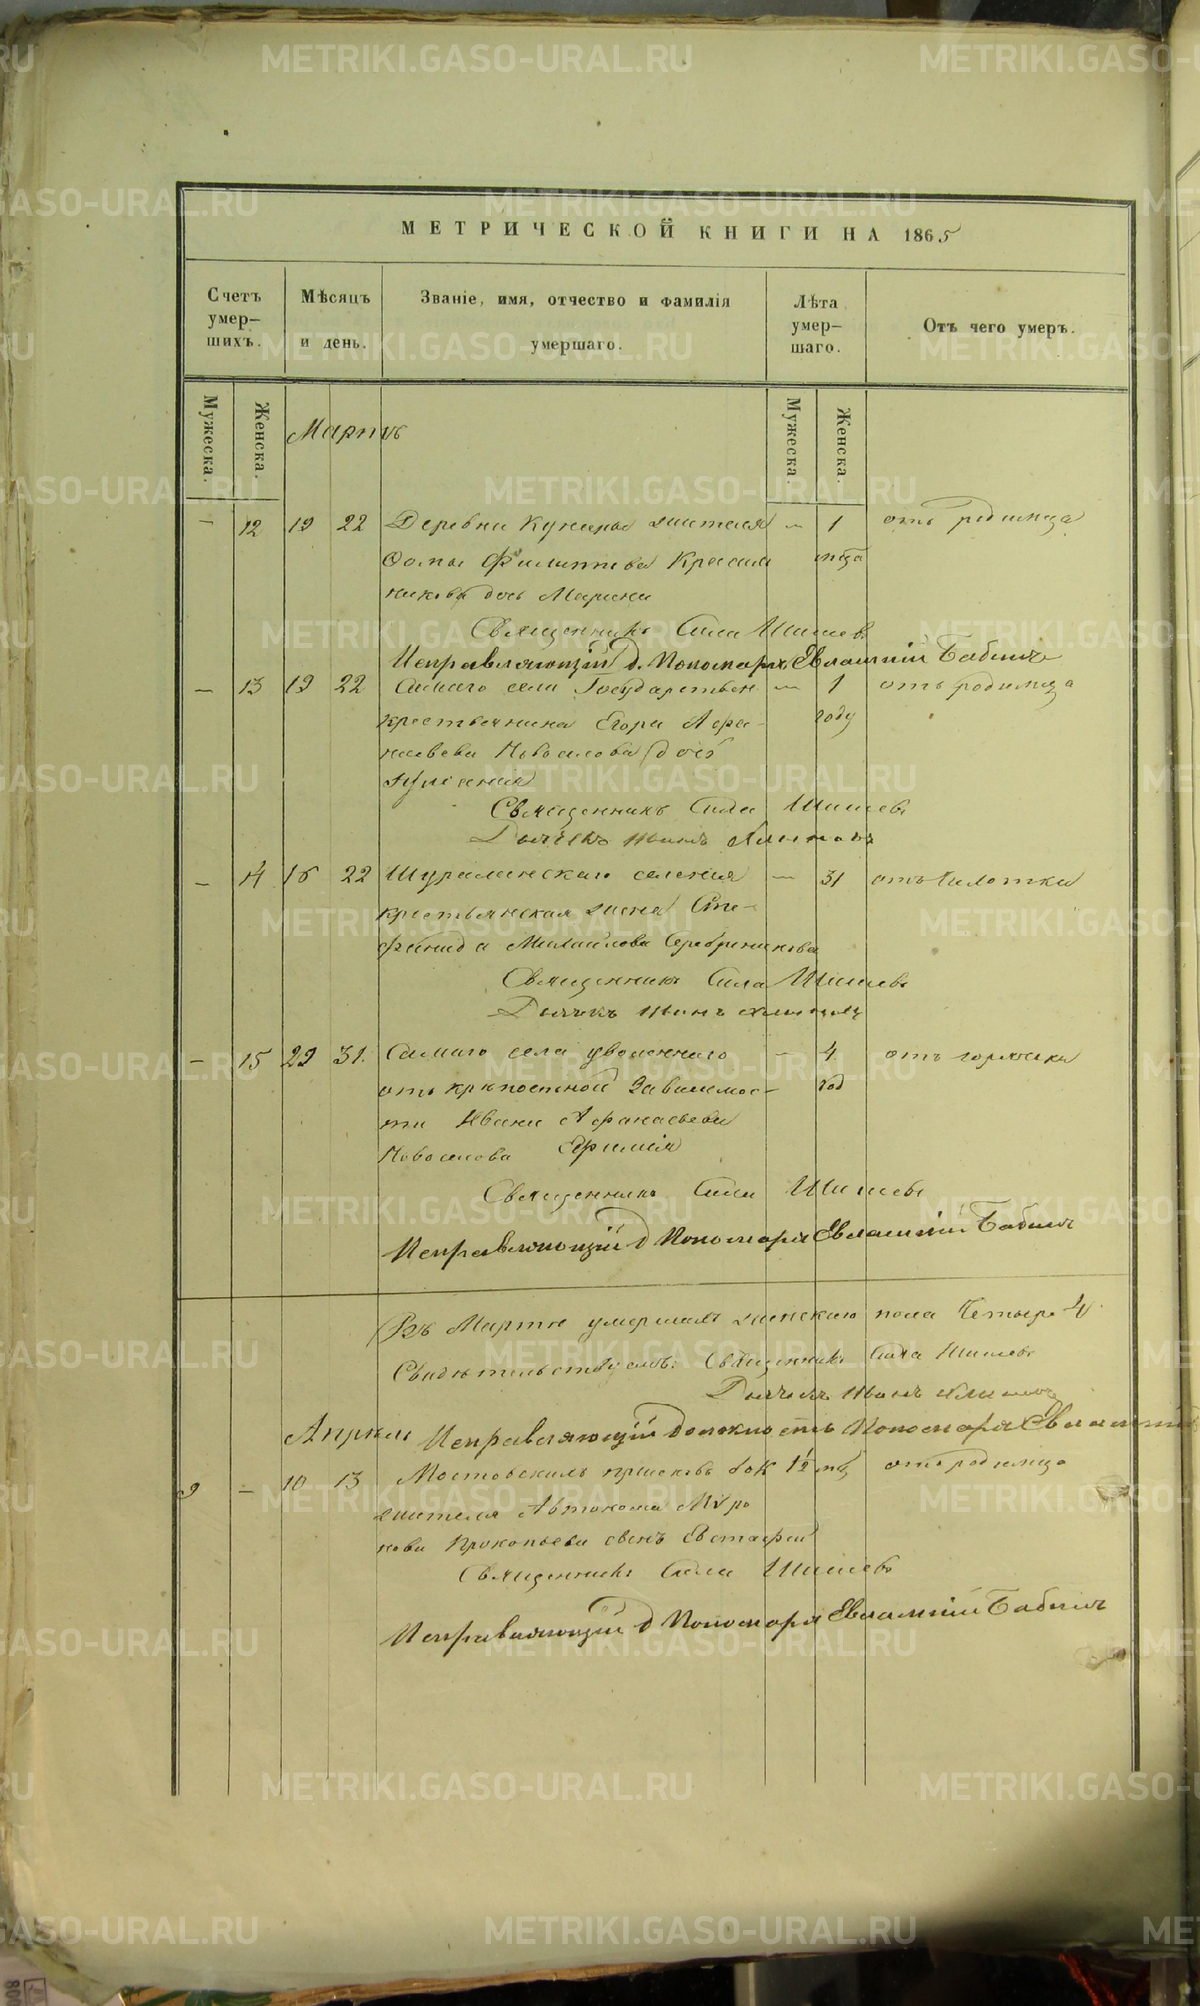 МЕТРИЧЕСКОЙ КНИГИ НА 1865
Счетъ умер–шихъ.
Мѣсяцъ и день.
Званіе, имя, отчество и фамилія умершаго.
Лѣта умер–шаго.
Отъ чего умеръ.
Мужеска.
Женска.
Мартъ
Мужеска.
Женска.
– 12 19 22 Деревни Кунары жителя – 1 отъ родимца
Фомы Филиппова Красиль мца
никова дочь Марина
Священникъ Сила Шишевъ
Исправляющій д. Пономаря Евлампій Бабинъ
– 13 19 22 Самаго села Государствен – 1 отъ родимца
крестьянина Егора Афа– году
насьева Новоселова дочь
Священникъ Сила Шишевъ
Дьячекъ
– 14 16 22 Шуралинскаго селенія – 31 отъ чахотки
крестьянская жена Сте–
фанида Михайлова Серебреникова
Священникъ Сила Шишевъ
Дьячекъ
– 15 29 31. Самаго села уволеннаго – 4 отъ горячки
отъ крѣпостной зависимос– год
ти Ивана Афанасьева
Новоселова Ефимія
Священникъ Сила Шишевъ
Исправляющій д Пономаря Евлампій Бабинъ
Въ Мартѣ умершихъ женскаго пола Четыре 4
Свидѣтельствуемъ: Священникъ Сила Шишевъ
Дьячекъ
Апрѣль Исправляющій должность Пономаря Евлампій
9 – 10 13 Мостовскихъ пріисковъ 1½ мц отъ родимца
жителя Автонома Миро
нова Прокопьева сынъ Евстафій
Священникъ Сила Шишевъ
Исправляющій д Пономаря Евлампій Бабинъ
METRIKI.GASO-URAL.RU